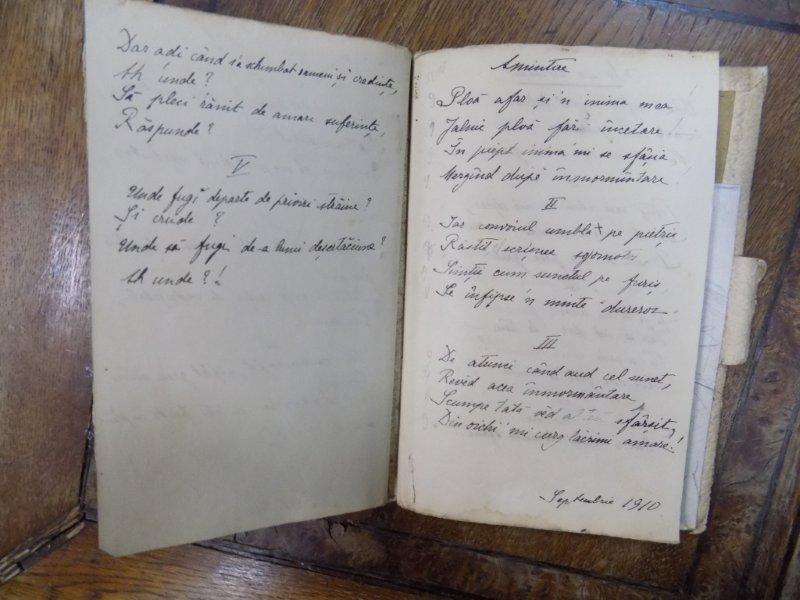 Dar adi când s'a schimbat oameni și credințe,
Ah unde?
Să pleci rănit de amare suferințe,
Răspunde?
V
Unde fugi departe de priviri străine?
Și crude?
Unde să fugi de-a lumii deșertăciune?
Ah unde?!
Amintire
Ploă afar și 'n inima mea
Jalnic ploă făr' încetare!
În piept inima 'mi se sfâșia
Mergînd după înmormîntare
II
Iar convoiul umblă pe pietriș
Rostit scrișnea sgomotos
Simții cum sunetul pe furiș
Se înfipse 'n minte dureros
III
De atunci când aud cel sunet,
Revăd acea înmormântare
Scumpe tată văd sfârșit,
Din ochii 'mi curg lacrimi amare!
Septembrie 1910